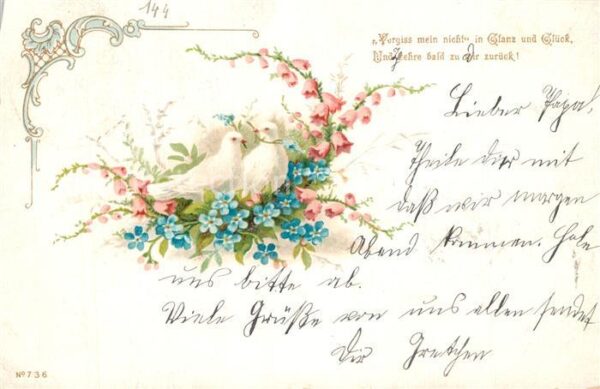 144
„Vergiss mein nicht“ in Glanz und Glück,
Und kehre bald zu dir zurück!
Lieber Papa!
Theile dir mit
daß wir morgen
Abend kommen. Hole
uns bitte ab.
Viele Grüße von uns allen sendet
Dir Gretchen
No 736